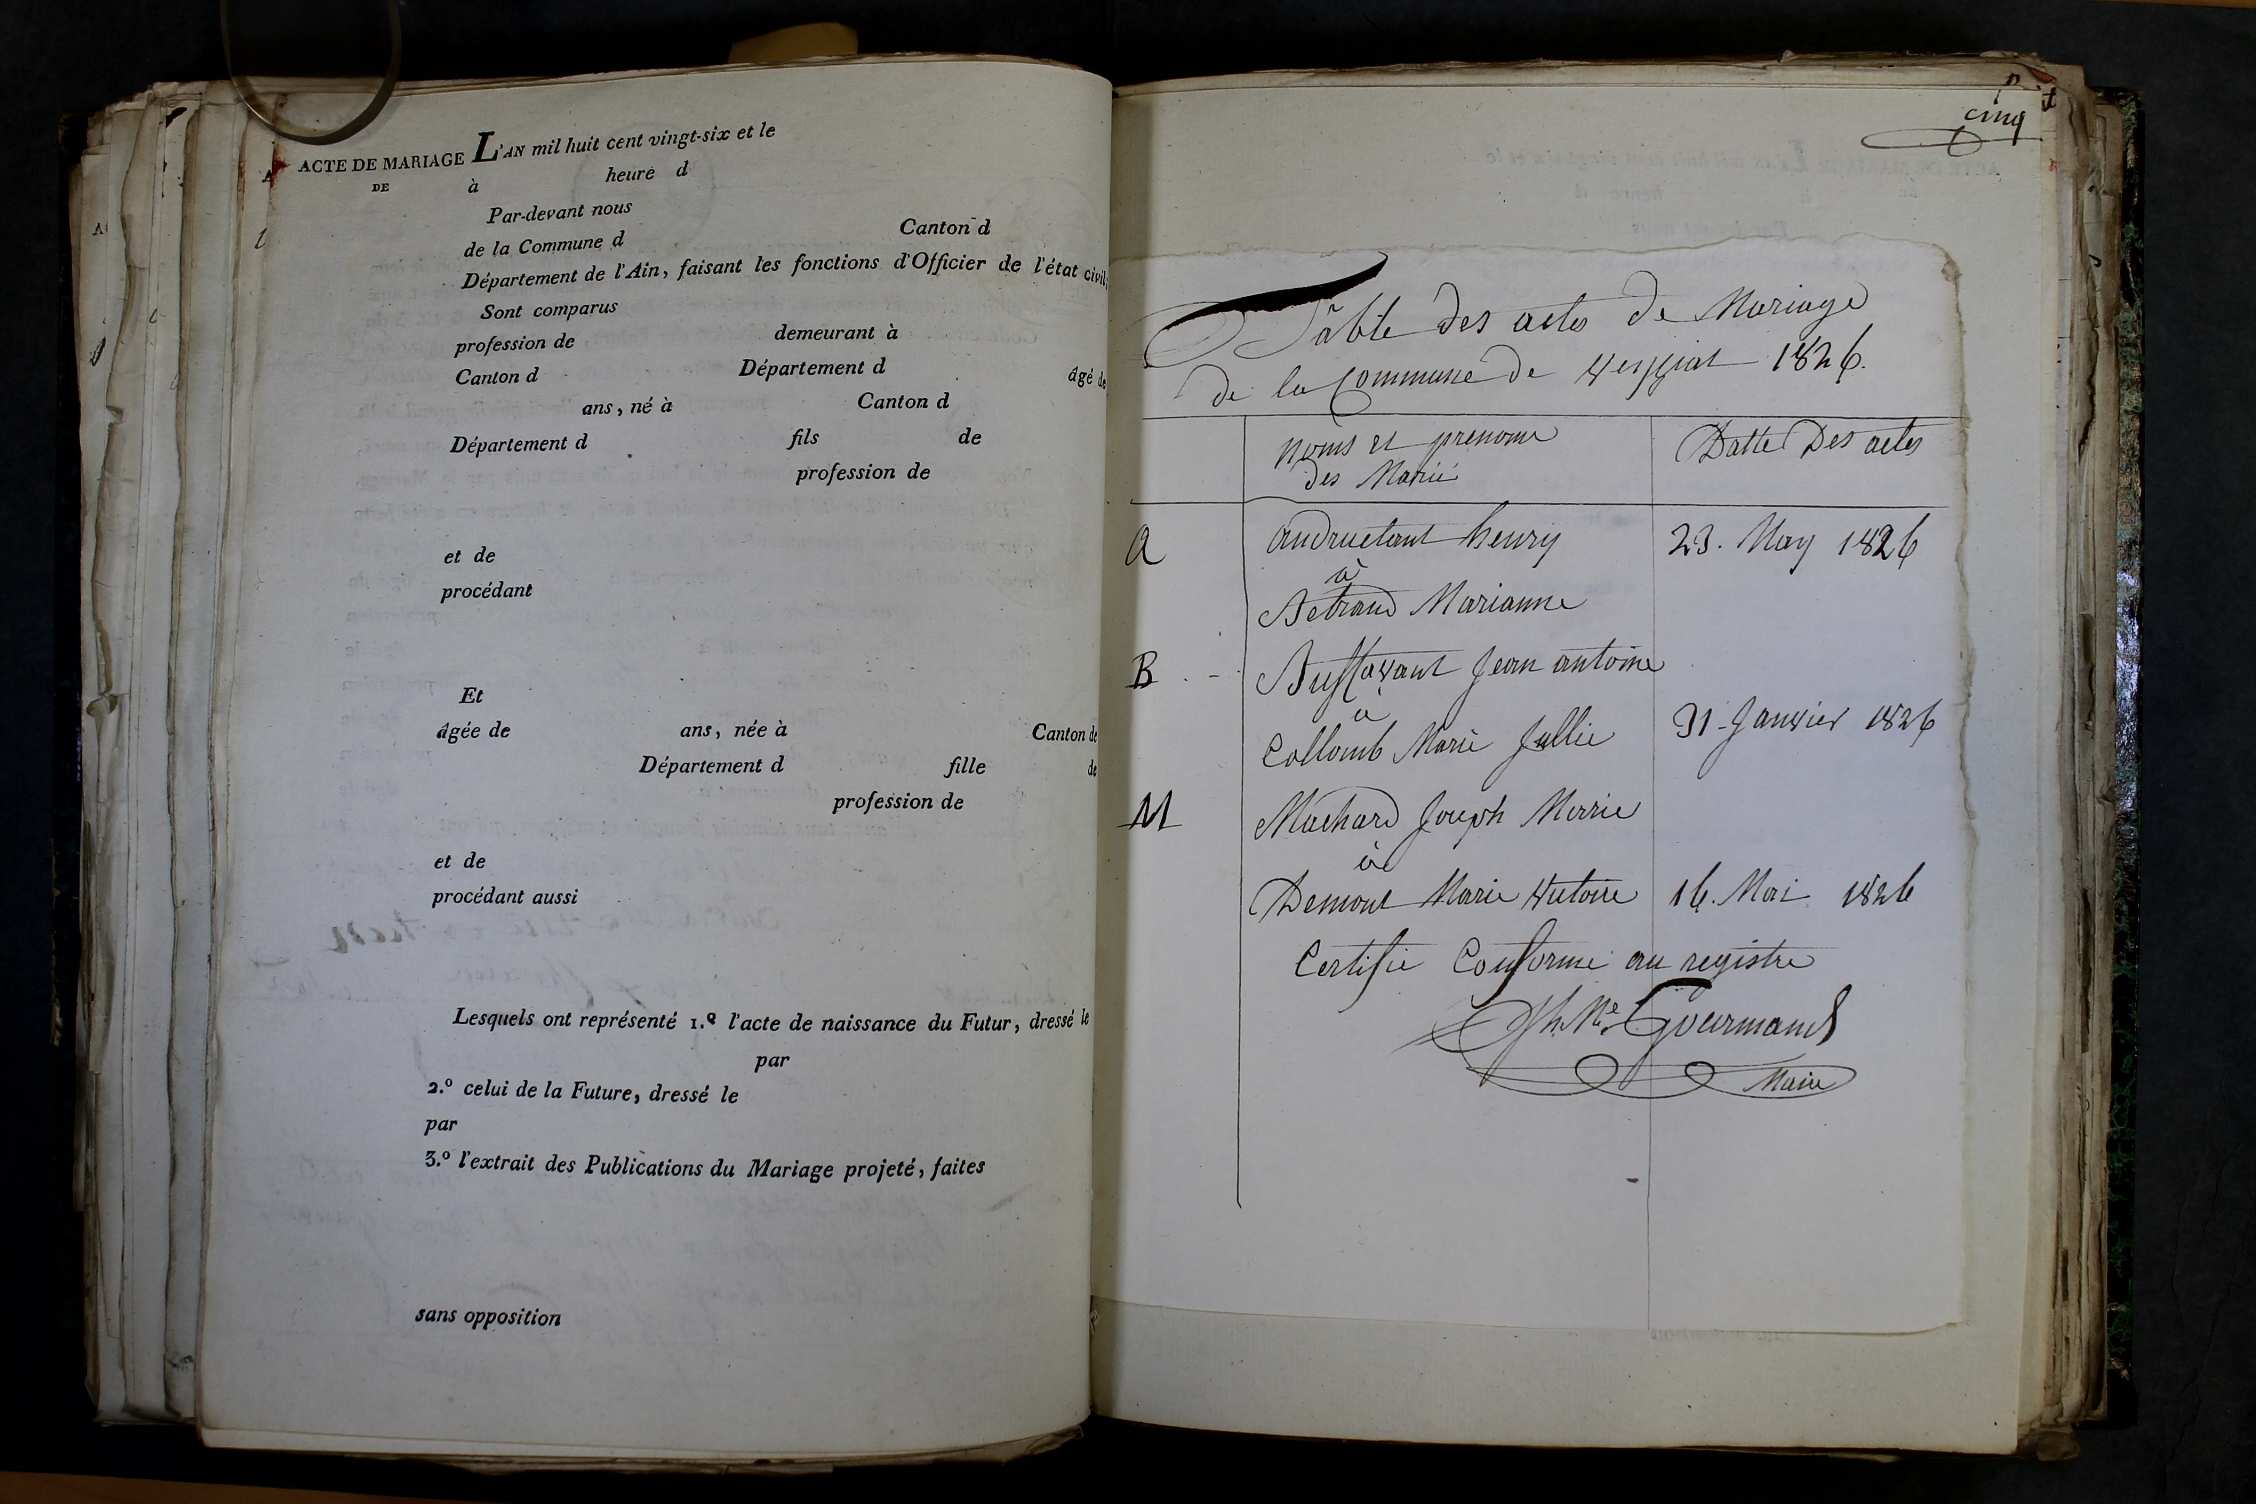 ACTE DE MARIAGE L'AN mil huit cent vingt-six et le
DE à heure d
Par-devant nous
de la Commune d Canton d
Département de l'Ain, faisant les fonctions d'Officier de l'état civil;
Sont comparus
profession de demeurant à
Canton d Département d âgé de
ans, né à Canton d
Département d fils de
profession de
et de
procédant
Et
âgée de ans, née à Canton de
Département d fille de
profession de
et de
procédant aussi
Lesquels ont représenté 1.º l'acte de naissance du Futur, dressé le
par
2.º celui de la Future, dressé le
par
3.º l'extrait des Publications du Mariage projeté, faites
sans opposition
cinq
Table des actes de Mariage
de la Commune de 1826.
noms et prenoms Datte Des actes
des Marié
A henry 23. May 1826
à
Marianne
B Jean antoine
à
Collomb Marie Jullie 31 Janvier 1826
M Machard Joseph Marie
à
Demont Marie Victoire 16. Mai 1826
Certifie Conforme au registre
Jh. Me. Gourmand
Maire